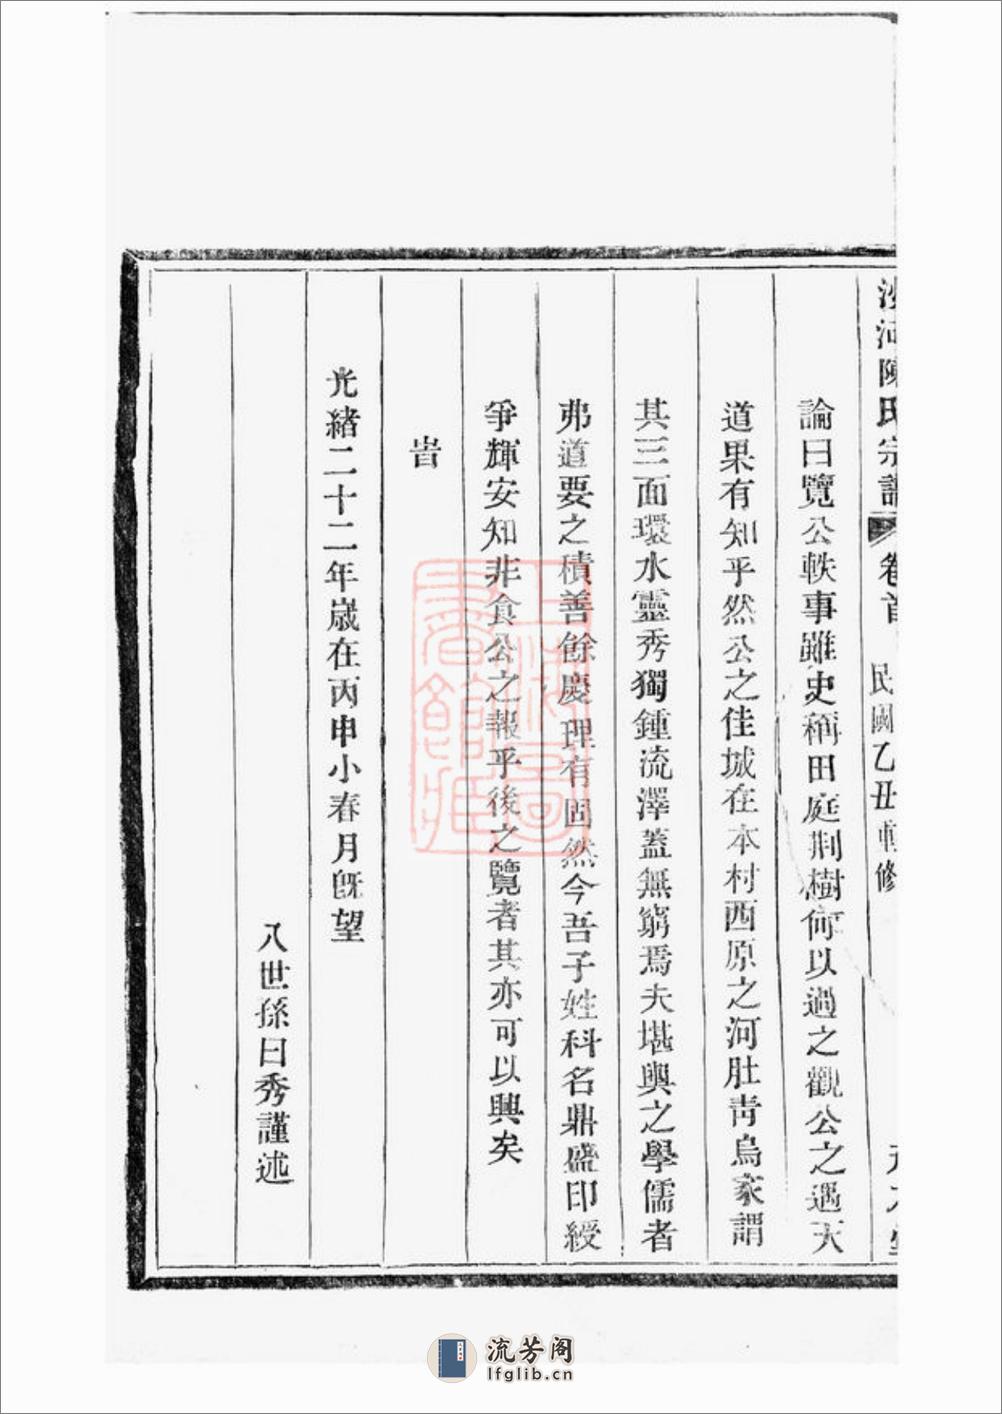 沙河陳氏宗譜 卷首 民國乙丑重修
論曰覽公軼事雖史稱田庭荆樹何以過之觀公之遇天
道果有知乎然公之佳城在本村西原之河肚靑烏家謂
其三面環水靈秀獨鍾流澤蓋無窮焉夫堪輿之學儒者
弗道要之積善餘慶理有固然今吾子姓科名鼎盛印綬
爭輝安知非食公之報乎後之覽者其亦可以興矣
旹
光緒二十二年歲在丙申小春月旣望
八世孫曰秀謹述
上海圖書館藏
流芳阁
lfglib.cn